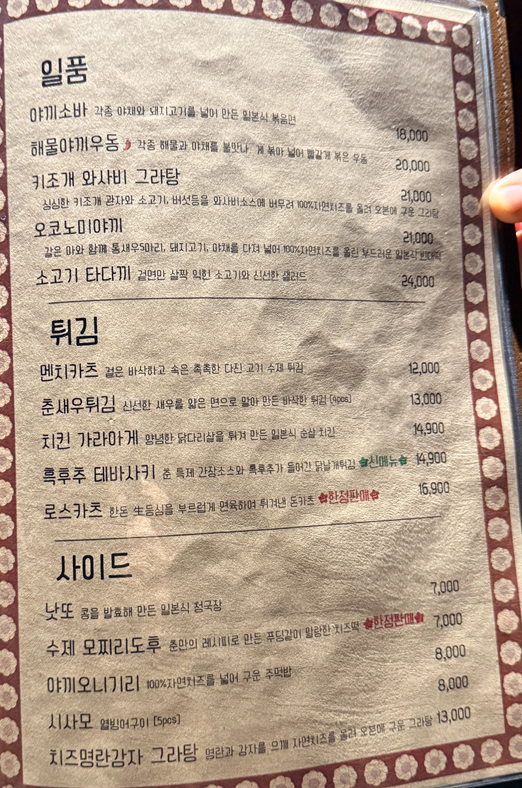 일품
야끼소바 각종 야채와 돼지고기를 넣어 만든 일본식 볶음면
18,000
해물야끼우동 각종 해물과 야채를 불맛나 게 볶아 넣어 빨갛게 볶은 우동
20,000
키조개 와사비 그라탕
21,000
싱싱한 키조개 관자와 소고기, 버섯등을 와사비소스에 버무려 100%자연치즈를 올려 오븐에 구운 그라탕
오코노미야끼
21,000
갈은 마와 함께 통새우5마리, 돼지고기, 야채를 다져 넣어 100%자연치즈를 올린 부드러운 일본식
소고기 타다끼 겉면만 살짝 익힌 소고기와 신선한 샐러드
24,000
튀김
멘치카츠 겉은 바삭하고 속은 촉촉한 다진 고기 수제 튀김
12,000
춘새우튀김 신선한 새우를 얇은 면으로 말아 만든 바삭한 튀김 [4pcs]
13,000
치킨 가라아게 양념한 닭다리살을 튀겨 만든 일본식 순살 치킨
14,900
흑후추 테바사키 춘 특제 간장소스와 흑후추가 들어간 닭날개튀김 신메뉴 14,900
로스카츠 한돈 生등심을 부드럽게 연육하여 튀겨낸 돈카츠 한정판매
16,900
사이드
낫또 콩을 발효해 만든 일본식 청국장
7,000
수제 모찌리도후 춘만의 레시피로 만든 푸딩같이 말랑한 치즈떡 한정판매 7,000
야끼오니기리 100%자연치즈를 넣어 구운 주먹밥
8,000
시사모 열빙어구이 [5pcs]
8,000
치즈명란감자 그라탕 명란과 감자를 으깨 자연치즈를 올려 오븐에 구운 그라탕 13,000